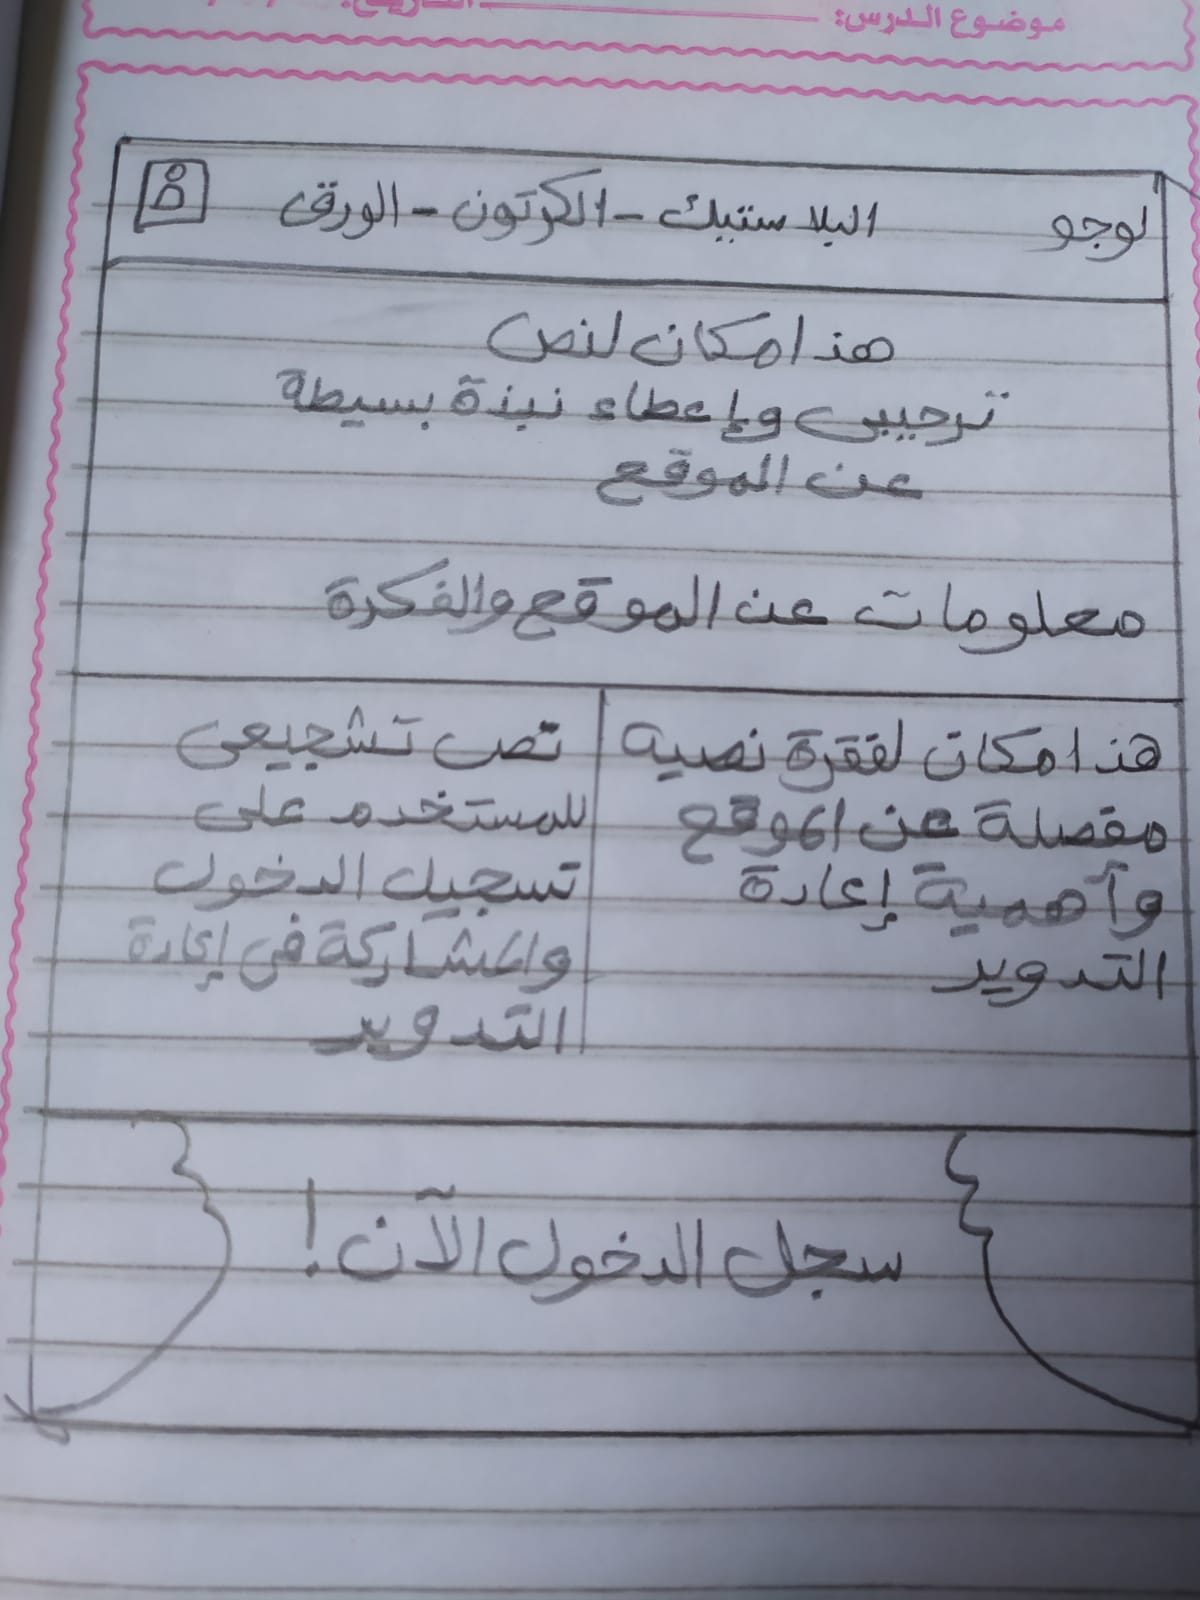 موضوع الدرس: التاريخ:
لوجو البلاستيك - الكرتون - الورق
هذا مكان لنص
ترحيبي وإعطاء نبذة بسيطة
عن الموقع
معلومات عن الموقع والفكرة
هذا مكان لفقرة نصية
مفصلة عن الموقع
وأهمية إعادة
التدوير
نص تشجيعي
للمستخدم على
تسجيل الدخول
والمشاركة في إعادة
التدوير
سجل الدخول الآن!